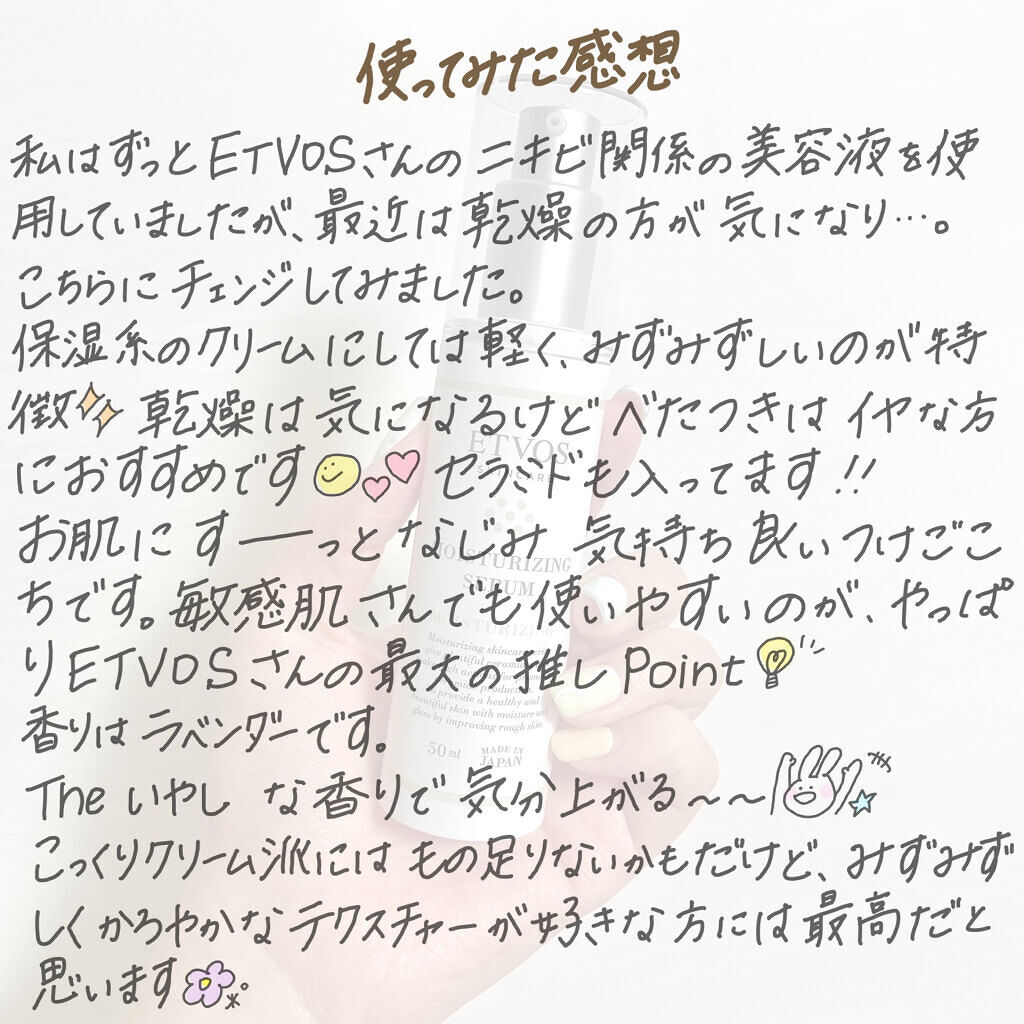 使ってみた感想
私はずっとETVOSさんのニキビ関係の美容液を使
用していましたが、最近は乾燥の方が気になり…。
こちらにチェンジしてみました。
保湿系のクリームにしては軽く、みずみずしいのが特
徴 乾燥は気になるけどべたつきはイヤな方
におすすめです セラミドも入ってます!!
お肌にすーーっとなじみ気持ち良いつけごこ
ちです。敏感肌さんでも使いやすいのが、やっぱ
りETVOSさんの最大の推しPoint
香りはラベンダーです。
The いやし な香りで気分上がる〜〜
こっくりクリーム派にはもの足りないかもだけど、みずみず
しくかろやかなテクスチャーが好きな方には最高だと
思います
ETVOS
SKINCARE
MOISTURIZING
SERUM
MOISTURIZING
Moisturizing skincare
beautiful skin with moisture and
gloss by improving rough skin.
50ml
MADE IN
JAPAN